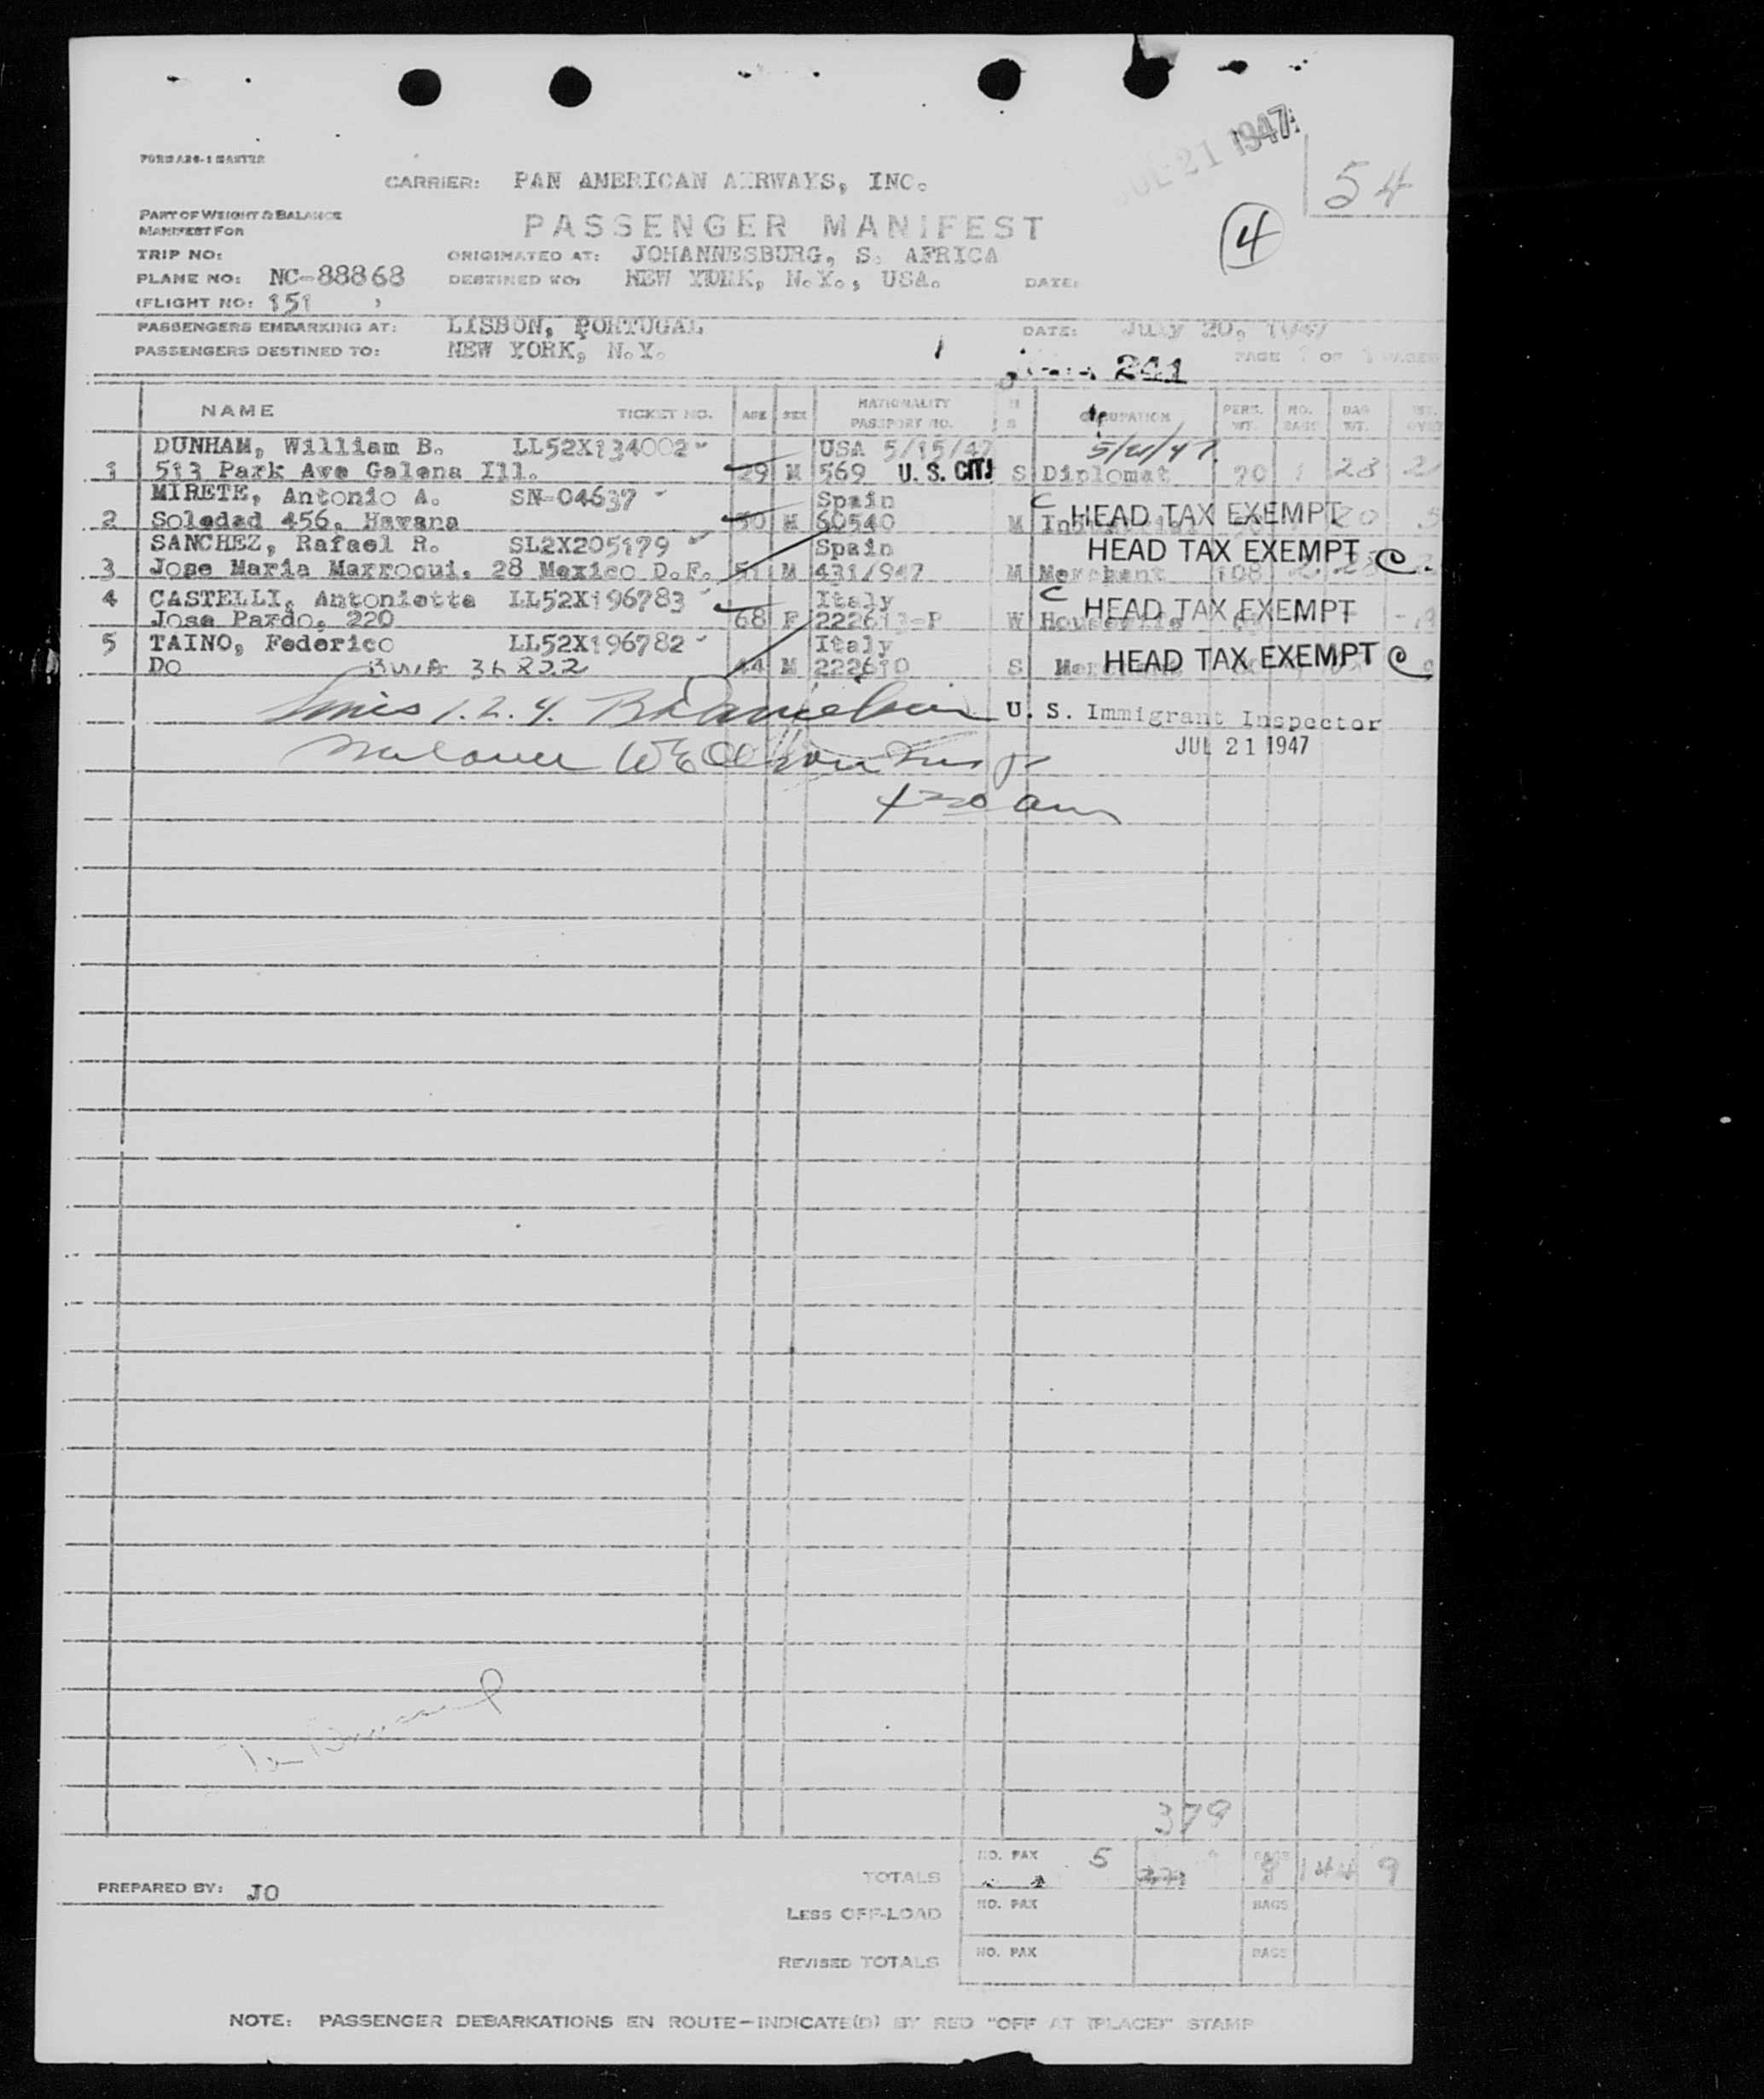 JUL 21 1947
FORM A26-1 MASTER
54
CARRIER: PAN AMERICAN AIRWAYS, INC.
PART OF WEIGHT & BALANCE
MANIFEST FOR
PASSENGER MANIFEST
4
TRIP NO: ORIGINATED AT: JOHANNESBURG, S. AFRICA
PLANE NO: NC-88868 DESTINED TO: NEW YORK, N.Y., USA. DATE:
(FLIGHT NO: 151 )
PASSENGERS EMBARKING AT: LISBON, PORTUGAL DATE: July 20, 1947
PASSENGERS DESTINED TO: NEW YORK, N.Y. 1 PAGE 1 OF 1 PAGES
241
NAME TICKET NO. AGE SEX NATIONALITY PASSPORT NO. M S OCCUPATION PERS. WT. NO. BAGS BAG WT.
DUNHAM, William B. LL52X134002 USA 5/15/47 5/21/47.
1 513 Park Ave Galena Ill. 29 M 569 U. S. CIT S Diplomat 90 1 28 2
MIRETE, Antonio A. SN-04637 Spain C HEAD TAX EXEMPT
2 Soledad 456, Havana 50 M 60540 M 20 5
SANCHEZ, Rafael R. SL2X205179 Spain HEAD TAX EXEMPT C.
3 Jose Maria Marroqui, 28 Mexico D.F. 51 M 431/947 M Merchant 108 2 25
4 CASTELLI, Antoniette LL52X196783 Italy C HEAD TAX EXEMPT
Jose Pardo, 220 68 F 222613-P W Housewife
5 TAINO, Federico LL52X196782 Italy HEAD TAX EXEMPT C
Do BWA 36822 44 M 222610 S
Lines 1. 2. 4. U. S. Immigrant Inspector
JUL 21 1947
am
379
TOTALS NO. PAX 5 BAGS 8 144 9
PREPARED BY: JO
LESS OFF-LOAD NO. PAX BAGS
REVISED TOTALS NO. PAX BAGS
NOTE: PASSENGER DEBARKATIONS EN ROUTE-INDICATE(D) BY RED "OFF AT (PLACE)" STAMP